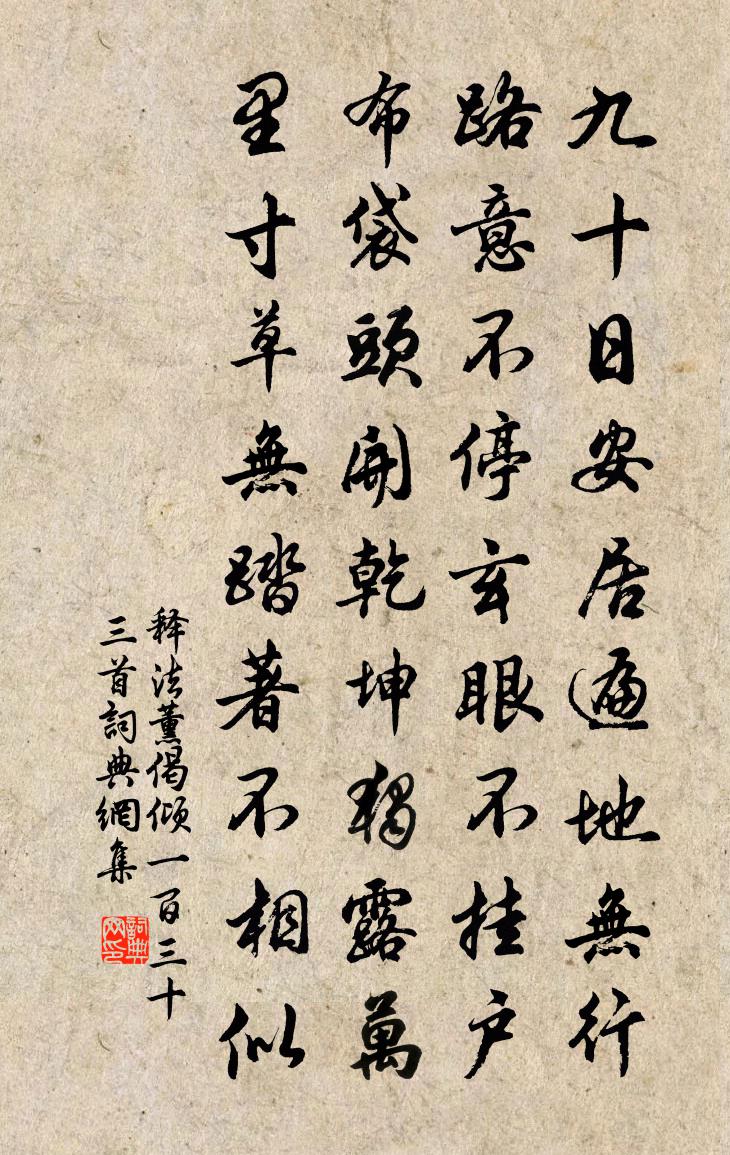 九十日安居遍地無行
路意不停玄眼不挂户
布袋頭開乾坤獨露萬
里寸草無踏著不相似
释法薰偈倾一百三十
三首詞典網集
詞典
网印